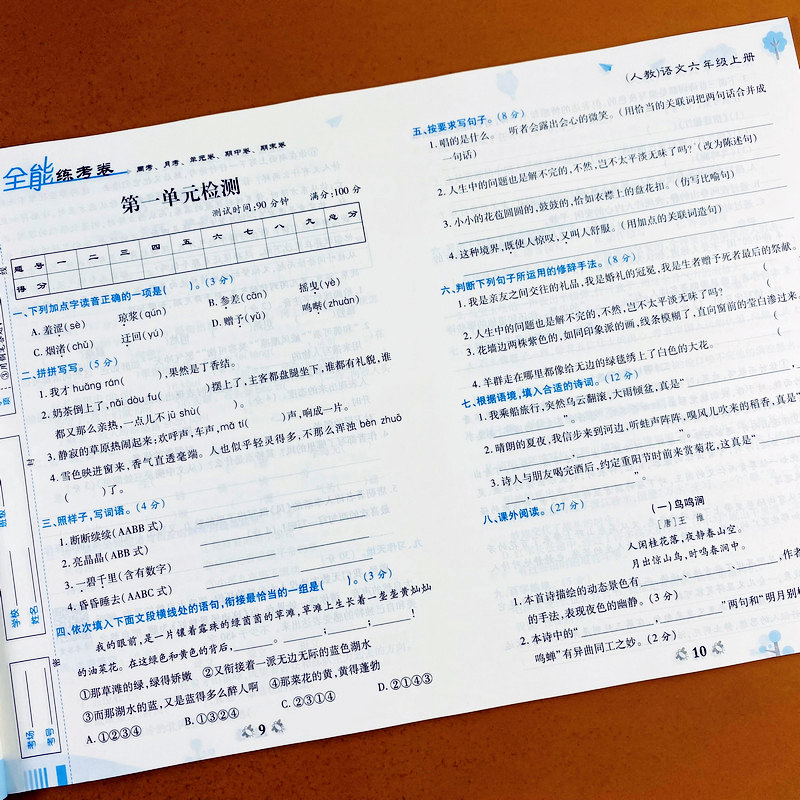 全能练考卷
周考、月考、单元卷、期中卷、期末卷
第一单元检测
测试时间:90分钟 满分:100分
题号 一 二 三 四 五 六 七 八 九 总分
得分
一、下列加点字读音正确的一项是( )。(3分)
A. 羞涩(sè) 琼浆(qún) B. 参差(cān) 摇曳(yè)
C. 烟渚(chǔ) 迂回(yú) D. 赠予(yǔ) 鸣啭(zhuàn)
二、拼拼写写。(5分)
1. 我才huǎng rán( ),果然是丁香结。
2. 奶茶倒上了,nǎi dòu fu( )摆上了,主客都盘腿坐下,谁都有礼貌,谁
都又那么亲热,一点儿不jū shù( )。
3. 静寂的草原热闹起来:欢呼声,车声,mǎ tí( )声,响成一片。
4. 雪色映进窗来,香气直透毫端。人也似乎轻灵得多,不那么浑浊bèn zhuō
( )了。
三、照样子,写词语。(4分)
1. 断断续续(AABB式)
2. 亮晶晶(ABB式)
3. 一碧千里(含有数字)
4. 昏昏睡去(AABC式)
四、依次填入下面文段横线处的语句,衔接最恰当的一组是( )。(3分)
我的眼前,是一片镶着露珠的绿茵茵的草滩,草滩上生长着一垄垄黄灿灿
的油菜花。在这绿色和黄色的背后,____。____;____;____!
①那草滩的绿,绿得娇嫩 ②又衔接着一派无边无际的蓝色湖水
③而那湖水的蓝,又是蓝得多么醉人啊 ④那菜花的黄,黄得蓬勃
A. ①②③④ B. ①③②④ C. ②③①④ D. ②①④③
9
学校
姓名
考场
考号
(人教)语文六年级上册
五、按要求写句子。(8分)
1. 唱的是什么。 听者会露出会心的微笑。(用恰当的关联词把两句话合并成
一句话)
2. 人生中的问题也是解不完的,不然,岂不太平淡无味了吗?(改为陈述句)
3. 小小的花苞圆圆的,鼓鼓的,恰如衣襟上的盘花扣。(仿写比喻句)
4. 这种境界,既使人惊叹,又叫人舒服。(用加点的关联词造句)
六、判断下列句子所运用的修辞手法。(8分)
1. 我是亲友之间交往的礼品,我是婚礼的冠冕,我是生者赠予死者最后的祭献。
(
2. 人生中的问题也是解不完的,不然,岂不太平淡无味了吗? (
3. 花墙边两株紫色的,如同印象派的画,线条模糊了,直向窗前的莹白渗过来。
(
4. 羊群走在哪里都像给无边的绿毯绣上了白色的大花。 (
七、根据语境,填入合适的诗词。(12分)
1. 我乘船旅行,突然乌云翻滚,大雨倾盆,真是“____,
____”。
2. 晴朗的夏夜,我信步来到河边,听蛙声阵阵,嗅风儿吹来的稻香,真是“
____,____”。
3. 诗人与朋友喝完酒后,约定重阳节时前来赏菊花,这真是“____
____,____”。
八、课外阅读。(27分)
(一)鸟鸣涧
[唐]王 维
人闲桂花落,夜静春山空。
月出惊山鸟,时鸣春涧中。
1. 本首诗描绘的动态景色有____、____、____,作者
的手法,表现夜色的幽静。(3分)
2. 本诗中的“____,____”两句和“明月别枝
鸣蝉”有异曲同工之妙。(2分)
10